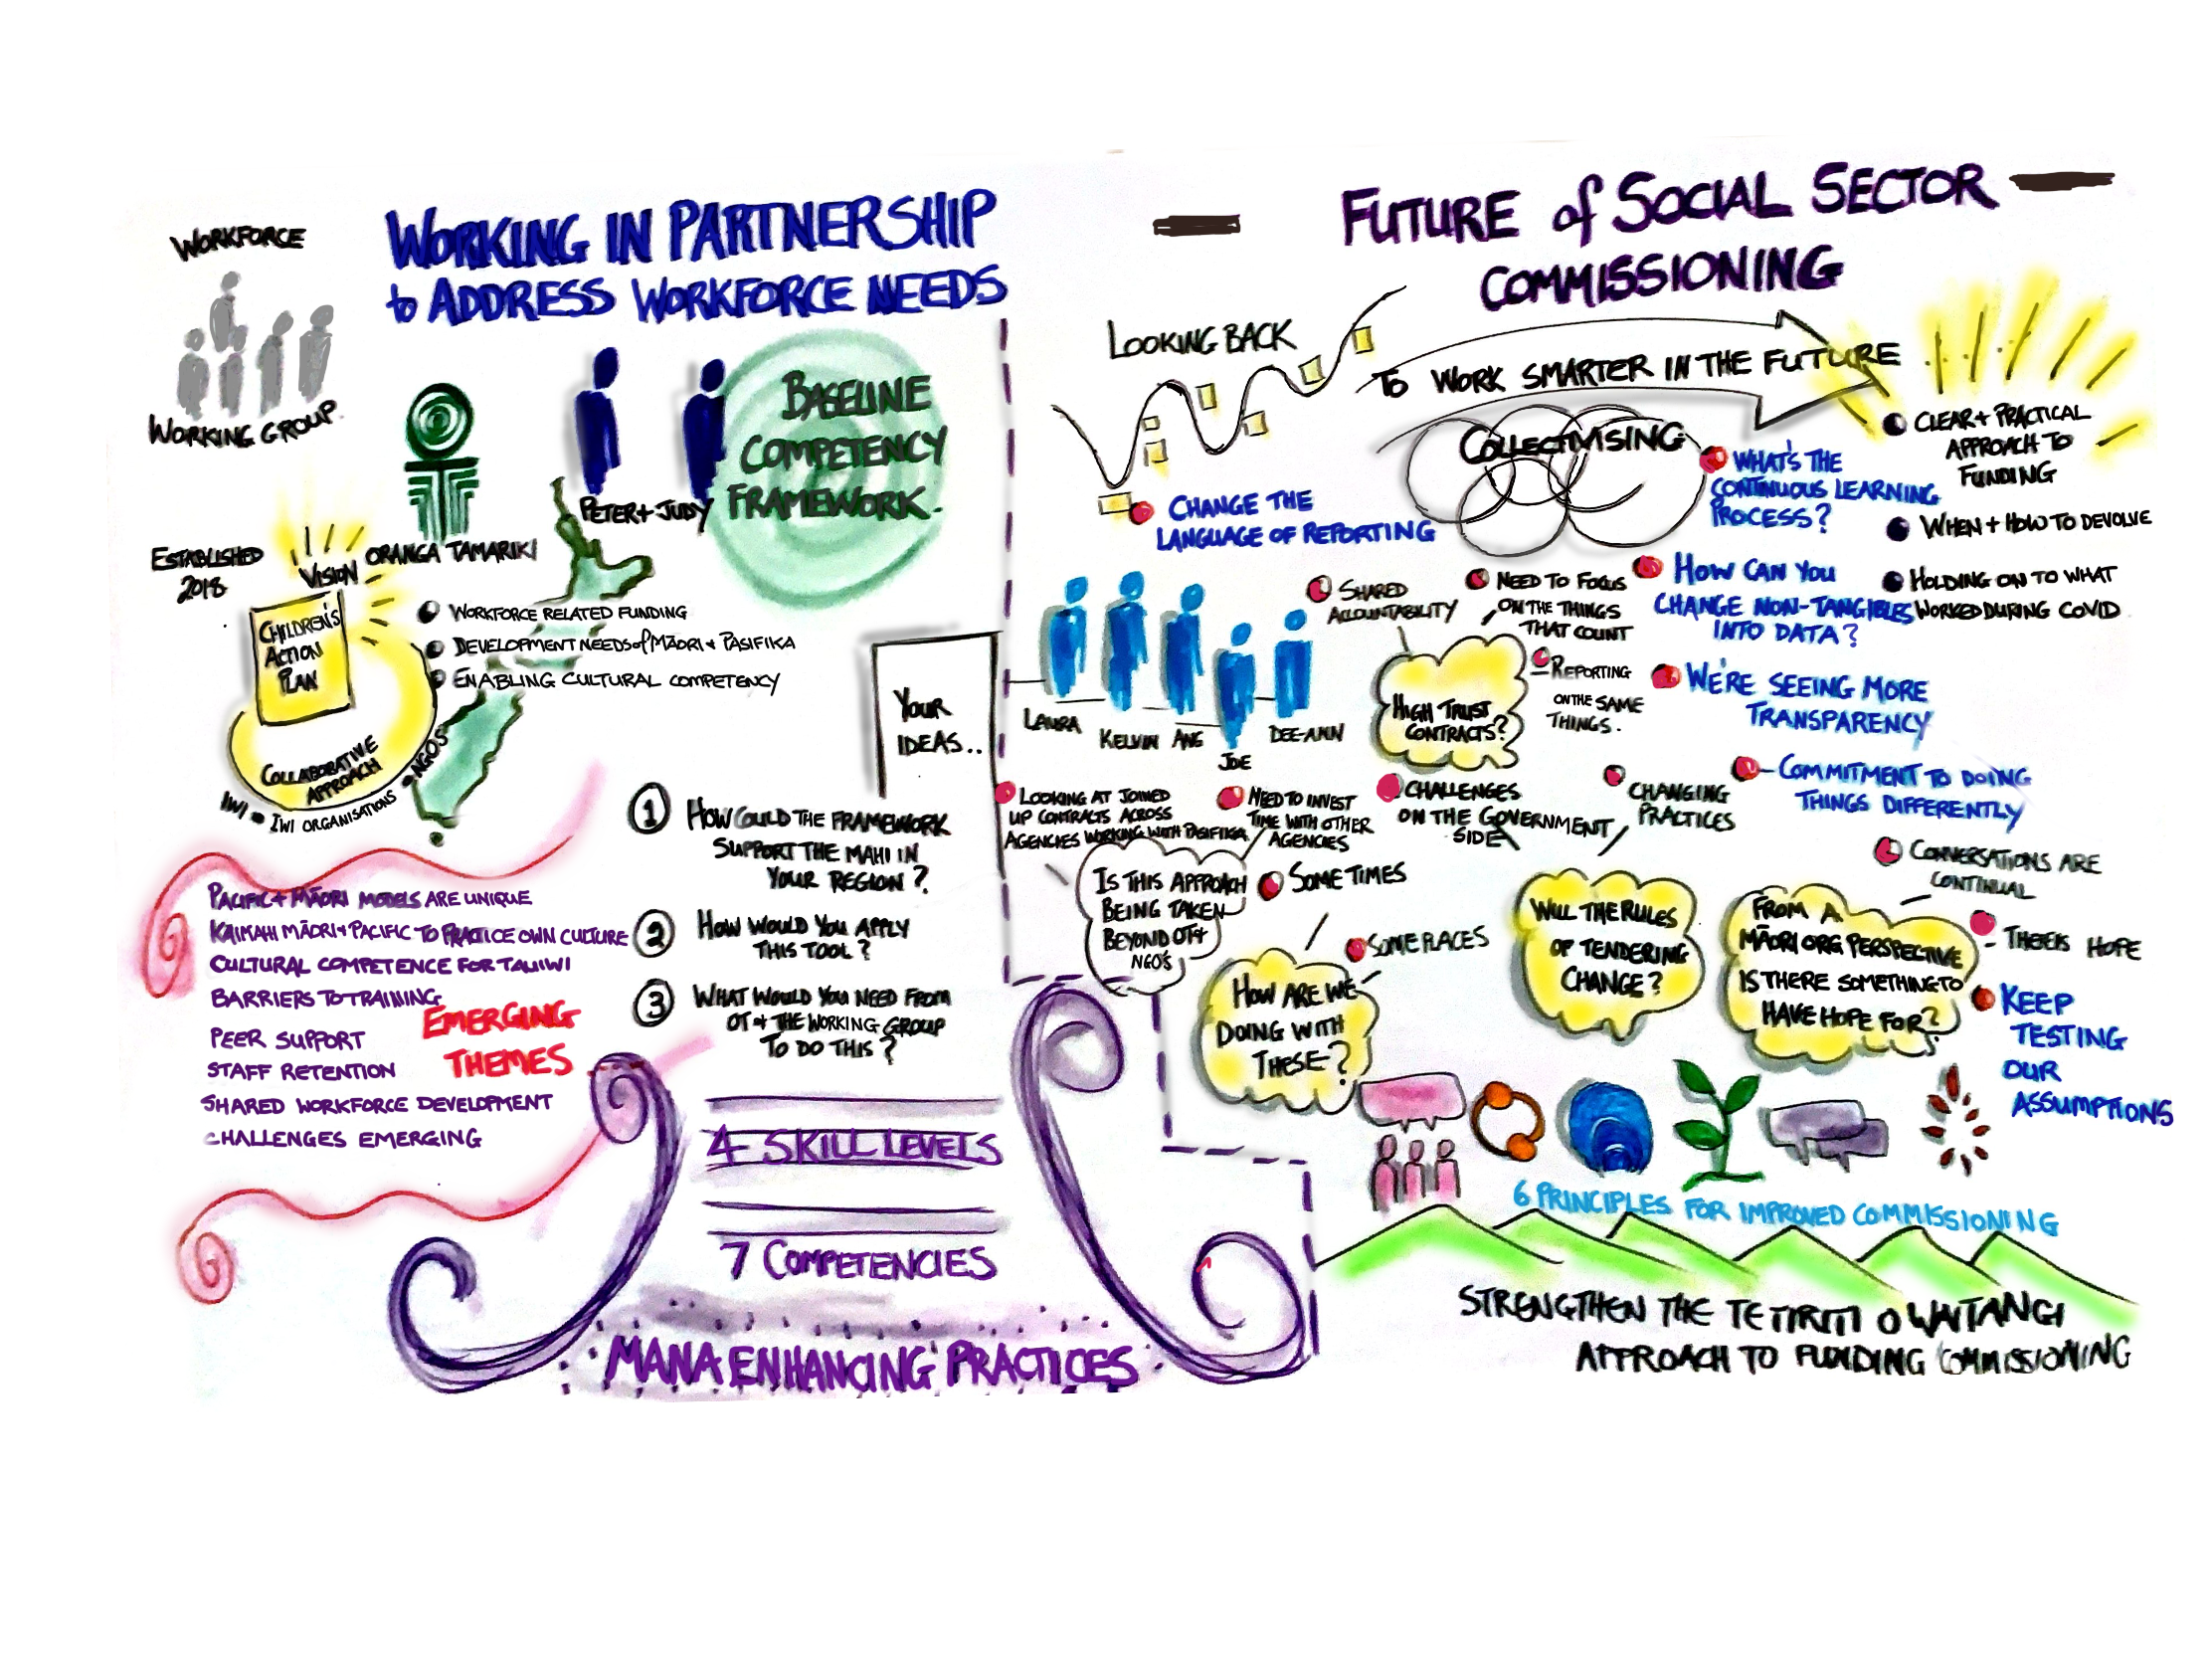 WORKFORCE
WORKING GROUP.
WORKING IN PARTNERSHIP
to ADDRESS WORKFORCE NEEDS
PETER + JUDY
BASELINE
COMPETENCY
FRAMEWORK.
ORANGA TAMARIKI
ESTABLISHED
2018
VISION
CHILDREN'S
ACTION
PLAN
COLLABORATIVE
APPROACH
IWI - IWI ORGANISATIONS - NGOS
WORKFORCE RELATED FUNDING
DEVELOPMENT NEEDS of MĀORI + PASIFIKA
ENABLING CULTURAL COMPETENCY
YOUR
IDEAS..
1 HOW COULD THE FRAMEWORK
SUPPORT THE MAHI IN
YOUR REGION?
2 HOW WOULD YOU APPLY
THIS TOOL?
3 WHAT WOULD YOU NEED FROM
OT + THE WORKING GROUP
TO DO THIS?
PACIFIC + MĀORI MODELS ARE UNIQUE
KAIMAHI MĀORI + PACIFIC TO PRACTICE OWN CULTURE
CULTURAL COMPETENCE FOR TAUIWI
BARRIERS TO TRAINING
PEER SUPPORT
STAFF RETENTION
SHARED WORKFORCE DEVELOPMENT
CHALLENGES EMERGING
EMERGING
THEMES
4 SKILL LEVELS
7 COMPETENCIES
MANA ENHANCING PRACTICES
FUTURE of SOCIAL SECTOR
COMMISSIONING
LOOKING BACK
TO WORK SMARTER IN THE FUTURE
COLLECTIVISING
CHANGE THE
LANGUAGE OF REPORTING
WHAT'S THE
CONTINUOUS LEARNING
PROCESS?
CLEAR + PRACTICAL
APPROACH TO
FUNDING
WHEN + HOW TO DEVOLVE
HOLDING ON TO WHAT
WORKED DURING COVID
LAURA
KELVIN
ANG
JOE
DEE-ANN
SHARED
ACCOUNTABILITY
NEED TO FOCUS
ON THE THINGS
THAT COUNT
HOW CAN YOU
CHANGE NON-TANGIBLES
INTO DATA?
HIGH TRUST
CONTRACTS?
REPORTING
ON THE SAME
THINGS.
WE'RE SEEING MORE
TRANSPARENCY
LOOKING AT JOINED
UP CONTRACTS ACROSS
AGENCIES WORKING WITH PASIFIKA
NEED TO INVEST
TIME WITH OTHER
AGENCIES
CHALLENGES
ON THE GOVERNMENT
SIDE
CHANGING
PRACTICES
COMMITMENT TO DOING
THINGS DIFFERENTLY
IS THIS APPROACH
BEING TAKEN
BEYOND OT +
NGO'S
SOMETIMES
SOME PLACES
HOW ARE WE
DOING WITH
THESE?
WILL THE RULES
OF TENDERING
CHANGE?
FROM A
MĀORI ORG PERSPECTIVE
IS THERE SOMETHING TO
HAVE HOPE FOR?
CONVERSATIONS ARE
CONTINUAL
- THERE IS HOPE
KEEP
TESTING
OUR
ASSUMPTIONS
6 PRINCIPLES FOR IMPROVED COMMISSIONING
STRENGTHEN THE TE TIRITI O WAITANGI
APPROACH TO FUNDING COMMISSIONING